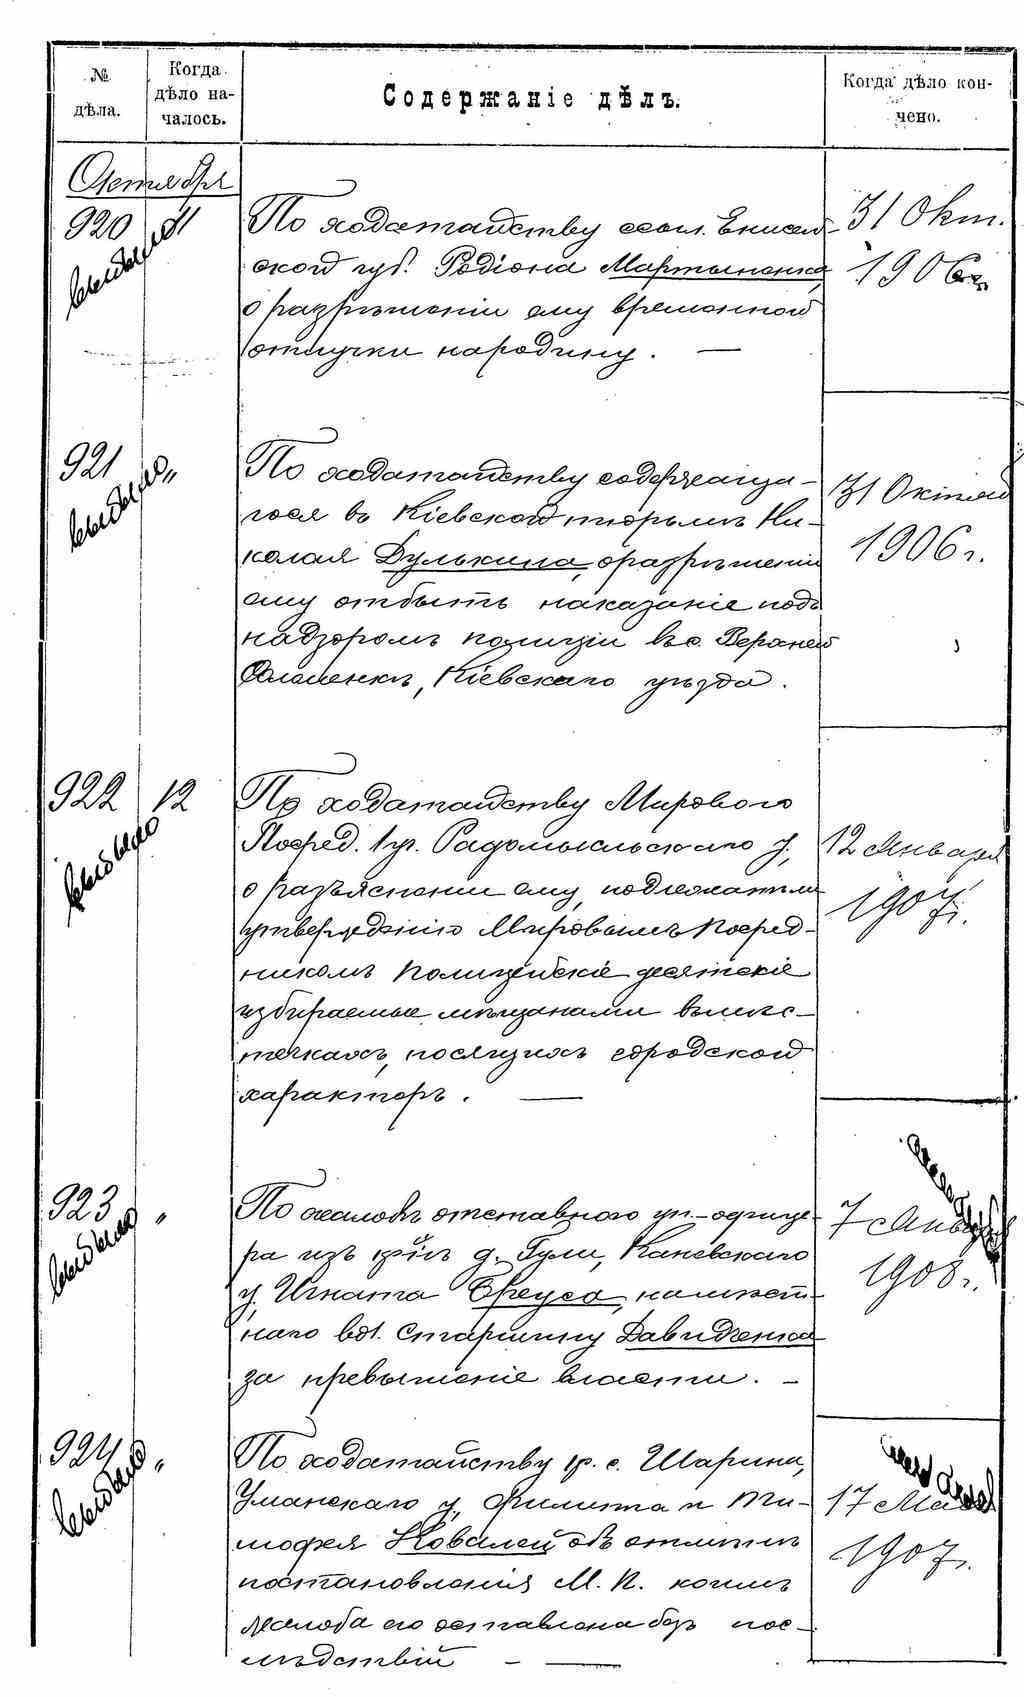 № дѣла.
Когда дѣло началось.
Содержаніе дѣлъ.
Когда дѣло кончено.
Октября
920 11
выбыло
По ходатайству ссыл. Енисей-
ской губ. Родіона Мартыненка,
о разрѣшеніи ему временной
отлучки народину. —
31 Окт.
1906 г.
921 „
выбыло
По ходатайству содержаща-
гося въ Кіевской тюрьмѣ Ни-
колая Дулькина, о разрѣшеніи
ему отбыть наказаніе подъ
надзоромъ полиціи въ с. Верхней
Соломенкѣ, Кіевскаго уѣзда.
31 Октяб
1906 г.
922 12
выбыло
По ходатайству Мирового
Посред. 1 уч. Радомысльскаго у.,
о разъясненіи ему, подлежатъ ли
утвержденію Мировымъ Посред-
никомъ полицейскіе десятскіе
избираемые мѣщанами въ мѣс-
течкахъ, носящихъ городской
характеръ. —
12 Января
1907 г.
923 „
выбыло
По жалобѣ отставного ун-офице-
ра изъ кр. д. Гули, Каневскаго
у, Игната Вреуса, на мѣст-
наго вол. старшину Давиденка
за превышеніе власти. —
7 Января
1908 г.
924 „
выбыло
По ходатайству кр. с. Шарина,
Уманскаго у, Филиппа и Ти-
мофея Ковалей, объ отмѣнѣ
постановленія М. П. коимъ
жалоба его оставлена безъ пос-
лѣдствій —
17 Мая
1907 г.